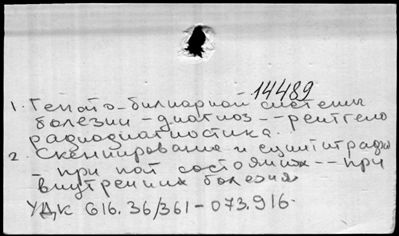 14489
1. Гепато-билиарной системы
болезни - диагноз -- рентгено
радиодиагностика.
2. Сканирование и сцинтиграфия
- при пат состояниях -- при
внутренних болезня
УДК 616.36/361-073.916.